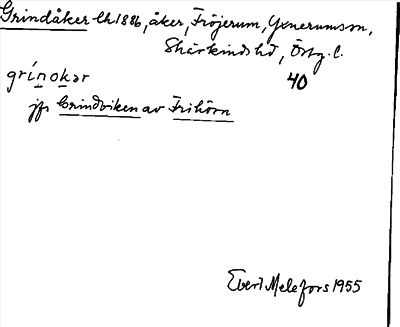 Grindåker lh 1886, åker, Fröjerum, Yxnerumssn,
Skärkinds hd, Östg. l.
grı́nokər 40
jfr Grindviken av Frihörn
Evert Melefors 1955